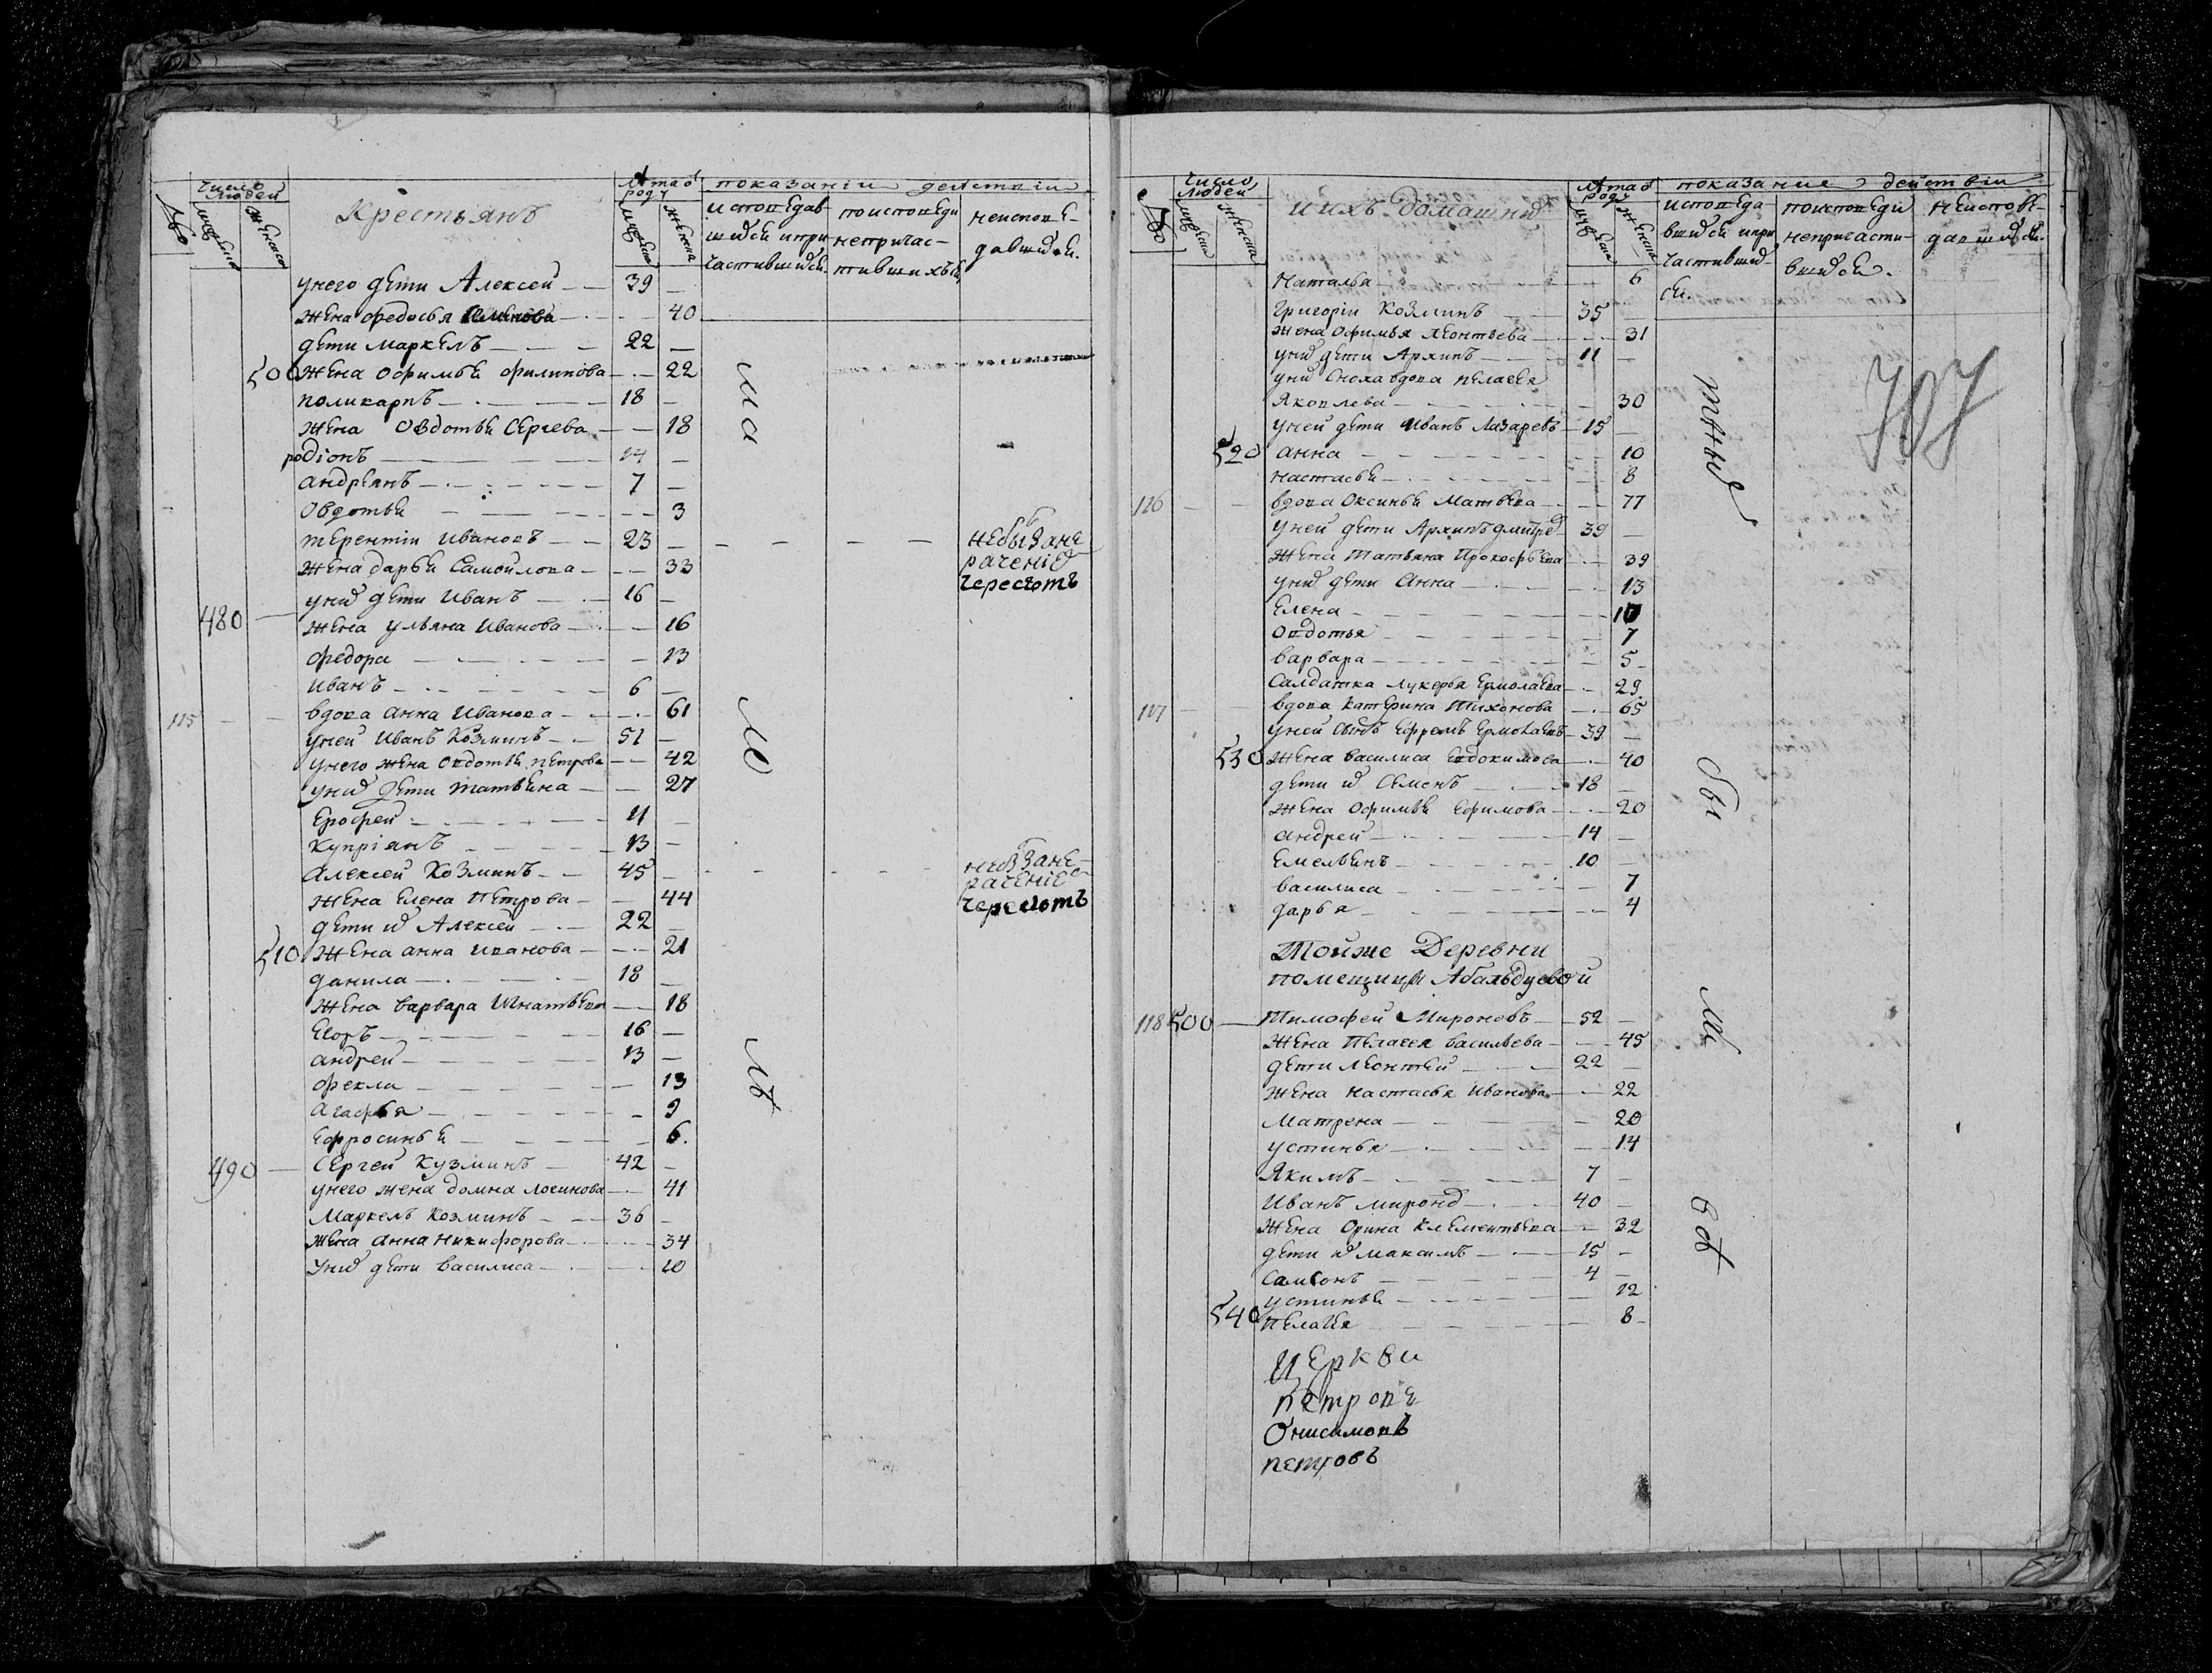 число
людей
мужеска
женска
Крестьянъ
Лѣта от
роду
мужска
женска
показаніи действіи
исповедав
шихся и при
частившихся.
по исповеди
непричас-
тившихъся
неисповѣ-
давшихся.
у него дети Алексей — 39
жена Федосья — 40
дети Маркелъ — 22
500 жена Офимья Филипова — 22
поликарпъ — 18
жена Овдотья Сергева — 18
родіонъ — 14
андреянъ — 7
Овдотья — 3
терентіи Ивановъ — 23
небыв за не
раченіе
жена дарья Самойлова — 33
480 у них дети Иванъ — 16
жена ульяна Иванова — 16
федора — 13
иванъ — 6
115 вдова анна Иванова — 61
у ней Иванъ Козминъ — 51
у него жена Овдотья петрова — 42
у них дети татьяна — 27
Ерофей — 11
Купріянъ — 13
алексей Козминъ — 45
небв за не-
раченіе
жена Елена Петрова — 44
дети их Алексей — 22
510 жена анна иванова — 21
данила — 18
жена варвара Игнатьева — 18
Егоръ — 16
андрей — 13
фекла — 13
агафья — 9
ефросинья — 6.
490 Сергей Кузминъ — 42
у него жена домна логинова — 41
Маркелъ Козминъ — 36
жена анна никифорова — 34
у них дети василиса — 10
число
людей
мужеска
женска
и ихъ домашних
Лѣта от
роду
мужеска
женска
показание действіи
исповеда
вшихся и при
частивших
ся.
по исповеди
непричасти-
вшихся.
неисповѣ-
давшихся.
707
Наталья — 6
Григоріи Козминъ — 35
жена Офимья леонтьева — 31
у них дети Архипъ — 11
у них сноха вдова пелагея
Яковлева — 30
у ней дети Иванъ Лазаревъ — 15
520 анна — 10
настасья — 8
116 вдова Оксинья Матвѣева — 77
у ней дети Архипъ дмитрев — 39
жена Татьяна Прокофьева — 39
у них дети Анна — 13
Елена — 10
Овдотья — 7
варвара — 5
Салдатка лукерья Ермолаева — 29
117 вдова Катерина Тихонова — 65
у ней сынъ Ефремъ Ермолаевъ — 39
530 жена василиса Евдокимова — 40
дети их Семенъ — 18
жена Офимья Ефимова — 20
андрей — 14
Емельянъ — 10
василиса — 7
дарья — 4
Тойже Деревни
помещицы Абальдуевой
118 500 Тимофей Мироновъ — 52
жена Пелагея васильева — 45
дети леонтей — 22
жена настасья Иванова — 22
Матрена — 20
устинья — 14
Якимъ — 7
Иванъ миронов — 40
жена Орина Клементьева — 32
дети их максимъ — 15
самсонъ — 4
устинья — 12
540 пелагея — 8
церкви
петропа
Онисимовъ
петровъ